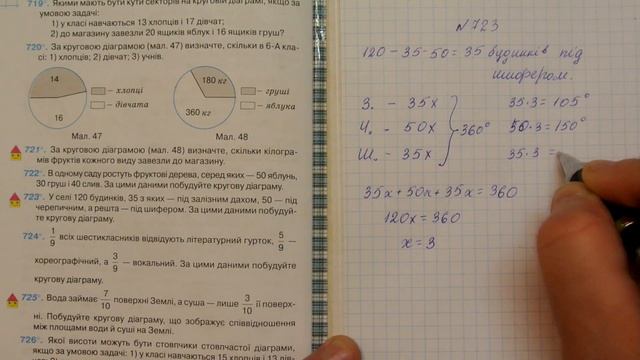 719°. Якими мають бути кути секторів на круговій діаграмі, якщо за
умовою задачі:
1) у класі навчаються 13 хлопців і 17 дівчат;
2) до магазину завезли 20 ящиків яблук і 16 ящиків груш?
720°. За круговою діаграмою (мал. 47) визначте, скільки в 6-А кла-
сі: 1) хлопців; 2) дівчат; 3) учнів.
14
16
— хлопці
— дівчата
Мал. 47
180 кг
360 кг
— груші
— яблука
Мал. 48
721°. За круговою діаграмою (мал. 48) визначте, скільки кілогра-
мів фруктів кожного виду завезли до магазину.
722°. В одному саду ростуть фруктові дерева, серед яких — 50 яблунь,
30 груш і 40 слив. За цими даними побудуйте кругову діаграму.
723°. У селі 120 будинків, 35 з яких — під залізним дахом, 50 — під
черепичним, а решта — під шифером. За цими даними побудуй-
те кругову діаграму.
724°. 1/9 всіх шестикласників відвідують літературний гурток, 5/9 —
хореографічний, а 3/9 — вокальний. За цими даними побудуйте
кругову діаграму.
725°. Вода займає 7/10 поверхні Землі, а суша — лише 3/10 її поверх-
ні. Побудуйте кругову діаграму, що зображує співвідношення
між площами води й суші на Землі.
726°. Якої висоти можуть бути стовпчики стовпчастої діаграми,
якщо за умовою задачі: 1) у класі навчаються 15 хлопців і 13 дів-
№ 723
120 - 35 - 50 = 35 будинків під
шифером.
З. - 35x
Ч. - 50x
Ш. - 35x
360°
35·3 = 105°
50·3 = 150°
35·3 =
35x + 50x + 35x = 360
120x = 360
x = 3